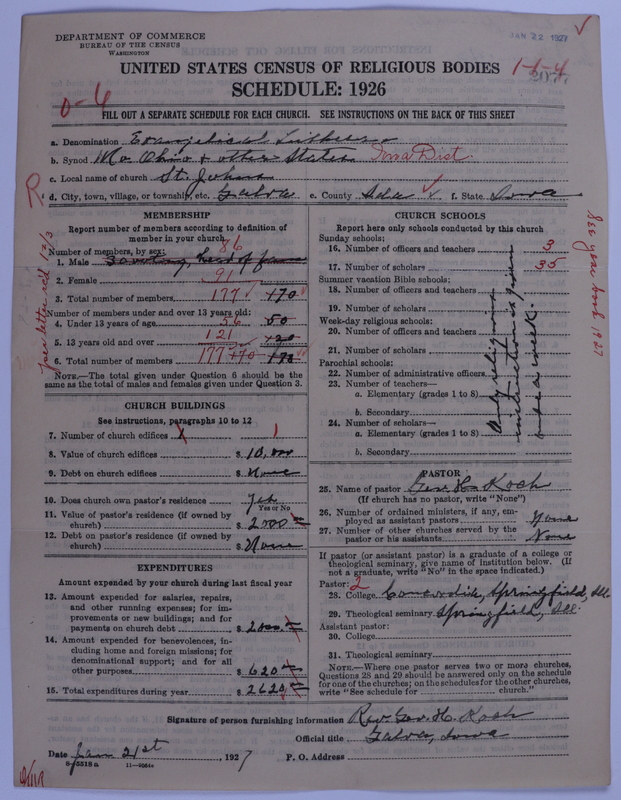 DEPARTMENT OF COMMERCE
BUREAU OF THE CENSUS
WASHINGTON
JAN 22 1927
UNITED STATES CENSUS OF RELIGIOUS BODIES
1-1-4
SCHEDULE: 1926
0-6
FILL OUT A SEPARATE SCHEDULE FOR EACH CHURCH. SEE INSTRUCTIONS ON THE BACK OF THIS SHEET
a. Denomination Evangelical Lutheran
b. Synod Mo. Ohio & other States Iowa Dist.
c. Local name of church St. Johns
R
d. City, town, village, or township, etc. Galva e. County Ida f. State Iowa
MEMBERSHIP
Report number of members according to definition of
member in your church
Number of members, by sex: 86
1. Male
2. Female 91
3. Total number of members 177 170
Number of members under and over 13 years old:
4. Under 13 years of age 56 50
5. 13 years old and over 121 120
6. Total number of members 177 170
NOTE.—The total given under Question 6 should be
same as the total of males and females given under Question 3.
CHURCH BUILDINGS
See instructions, paragraphs 10 to 12
7. Number of church edifices 1
8. Value of church edifices $ 10,000
9. Debt on church edifices $ None
10. Does church own pastor's residence Yes
Yes or No
11. Value of pastor's residence (if owned by
church) $ 2000
12. Debt on pastor's residence (if owned by
church) $ None
EXPENDITURES
Amount expended by your church during last fiscal year
13. Amount expended for salaries, repairs,
and other running expenses; for im-
provements or new buildings; and for
payments on church debt $ 2000
14. Amount expended for benevolences, in-
cluding home and foreign missions; for
denominational support; and for all
other purposes $ 620
15. Total expenditures during year $ 2620
CHURCH SCHOOLS
Report here only schools conducted by this church
Sunday schools:
16. Number of officers and teachers 3
17. Number of scholars 35
Summer vacation Bible schools:
18. Number of officers and teachers
19. Number of scholars
Week-day religious schools:
20. Number of officers and teachers
21. Number of scholars
Parochial schools:
22. Number of administrative officers
23. Number of teachers—
a. Elementary (grades 1 to 8)
b. Secondary
24. Number of scholars—
a. Elementary (grades 1 to 8)
b. Secondary
See year book 1927
PASTOR
25. Name of pastor Geo. H. Koch
(If church has no pastor, write "None")
26. Number of ordained ministers, if any, em-
ployed as assistant pastors None
27. Number of other churches served by the
pastor or his assistants None
If pastor (or assistant pastor) is a graduate of a college or
theological seminary, give name of institution below. (If
not a graduate, write "No" in the space indicated.)
Pastor: 2
28. College Concordia, Springfield, Ill
29. Theological seminary Springfield, Ill.
Assistant pastor:
30. College
31. Theological seminary
NOTE.—Where one pastor serves two or more churches,
Questions 28 and 29 should be answered only on the schedule
for one of the churches; on the schedules for the other churches,
write "See schedule for church."
Signature of person furnishing information Rev. Geo. H. Koch
Official title Galva, Iowa
Date Jan 21st, 1927 P. O. Address